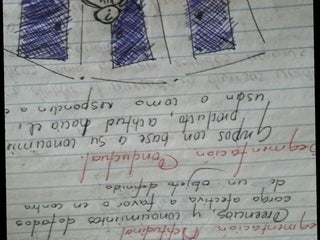 Segmentacion Actitudinal.
Creencias, y conocimientos dotados
carga afectiva a favor o en contra
de un objeto definido.
Segmentacion Conductual.
Grupos con base a su conocimie
producto, actitud hacia el,
usan o como responden a